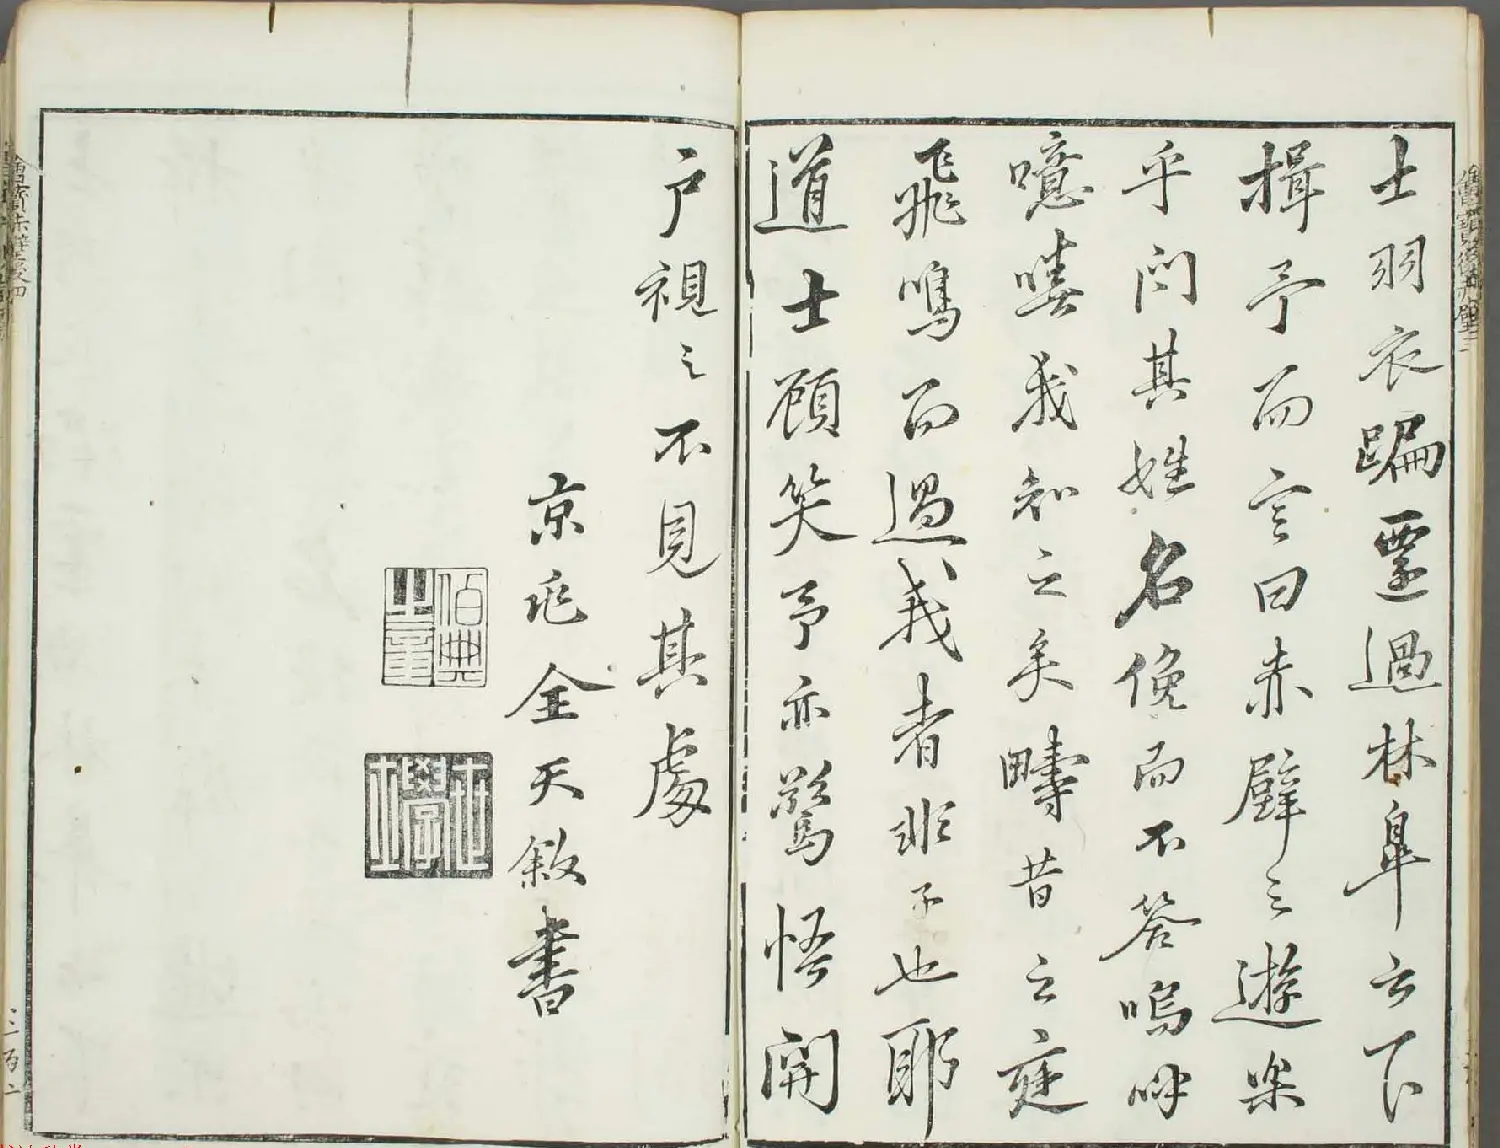 士羽衣蹁躚過林皐之下
揖予而言曰赤壁之遊樂
乎問其姓名俛而不答嗚呼
噫嘻我知之矣疇昔之夜
飛鳴而過我者非子也耶
道士顧笑予亦驚悟開
戶視之不見其處
京兆金天敘書
伯典
世學